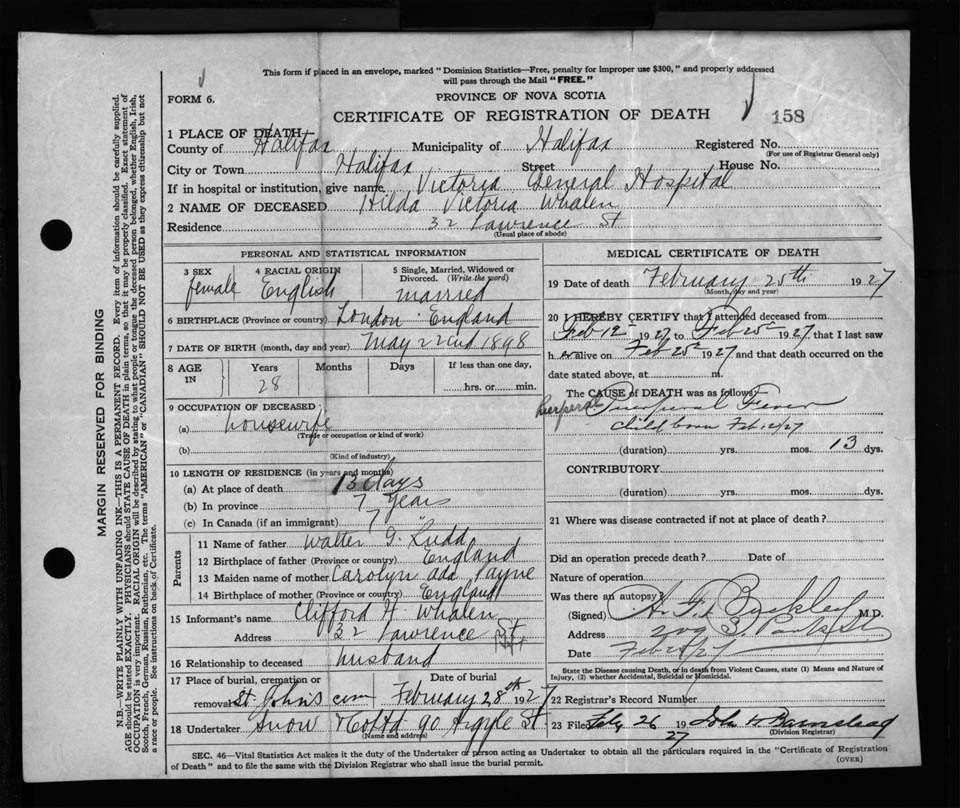 This form if placed in an envelope, marked "Dominion Statistics—Free, penalty for improper use $300," and properly addressed
will pass through the Mail "FREE."
FORM 6.
PROVINCE OF NOVA SCOTIA
CERTIFICATE OF REGISTRATION OF DEATH
158
1 PLACE OF DEATH—
County of Halifax Municipality of Halifax Registered No.
(For use of Registrar General only)
City or Town Halifax Street House No.
If in hospital or institution, give name Victoria General Hospital
2 NAME OF DECEASED Hilda Victoria Whalen
Residence 32 Lawrence St
(Usual place of abode)
PERSONAL AND STATISTICAL INFORMATION
3 SEX female
4 RACIAL ORIGIN English
5 Single, Married, Widowed or Divorced. (Write the word) married
6 BIRTHPLACE (Province or country) London England
7 DATE OF BIRTH (month, day and year) May 22nd 1898
8 AGE IN Years 28 Months Days If less than one day, hrs. or min.
9 OCCUPATION OF DECEASED
(a) housewife
(Trade or occupation or kind of work)
(b)
(Kind of industry)
10 LENGTH OF RESIDENCE (in years and months)
(a) At place of death 13 days
(b) In province 7 years
(c) In Canada (if an immigrant) 7 "
Parents
11 Name of father Walter J. Rudd
12 Birthplace of father (Province or country) England
13 Maiden name of mother Carolyn Ada Payne
14 Birthplace of mother (Province or country) England
15 Informant's name Clifford H Whalen
Address 32 Lawrence St
16 Relationship to deceased husband
17 Place of burial, cremation or removal St. John's cem Date of burial February 28th 1927
18 Undertaker Snow & Co Ltd 90 Argyle St
(Name and address)
MEDICAL CERTIFICATE OF DEATH
19 Date of death February 25th 1927
(Month, day and year)
20 I HEREBY CERTIFY that I attended deceased from
Feb 12 1927 to Feb 25 1927 that I last saw
h er alive on Feb 25 1927 and that death occurred on the
date stated above, at m.
The CAUSE of DEATH was as follows:
Puerperal Fever
Child born Feb 12/27
(duration) yrs. mos. 13 dys.
CONTRIBUTORY
(duration) yrs. mos. dys.
21 Where was disease contracted if not at place of death?
Did an operation precede death? Date of
Nature of operation
Was there an autopsy?
(Signed) Buckley M.D.
Address
Date Feb 25/27
State the Disease causing Death, or in death from Violent Causes, state (1) Means and Nature of
Injury, (2) whether Accidental, Suicidal or Homicidal.
22 Registrar's Record Number
23 Filed Feb, 26 1927 John H Barnstead
(Division Registrar)
SEC. 46—Vital Statistics Act makes it the duty of the Undertaker or person acting as Undertaker to obtain all the particulars required in the "Certificate of Registration
of Death" and to file the same with the Division Registrar who shall issue the burial permit.
(OVER)
MARGIN RESERVED FOR BINDING
N.B.—WRITE PLAINLY WITH UNFADING INK—THIS IS A PERMANENT RECORD. Every item of information should be carefully supplied.
AGE should be stated EXACTLY. PHYSICIANS should STATE CAUSE OF DEATH in plain terms, so that it may be properly classified. Exact statement of
OCCUPATION is very important. RACIAL ORIGIN will be described by stating to what people or tongue the deceased person belonged, whether English, Irish,
Scotch, French, German, Russian, Ruthenian, etc. The terms "AMERICAN" or "CANADIAN" SHOULD NOT BE USED as they express citizenship but not
a race or people. See instructions on back of Certificate.